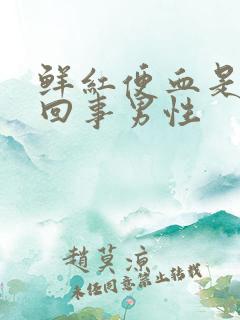 鲜红便血是
回事男性
赵莫凉
未经同意禁止转载